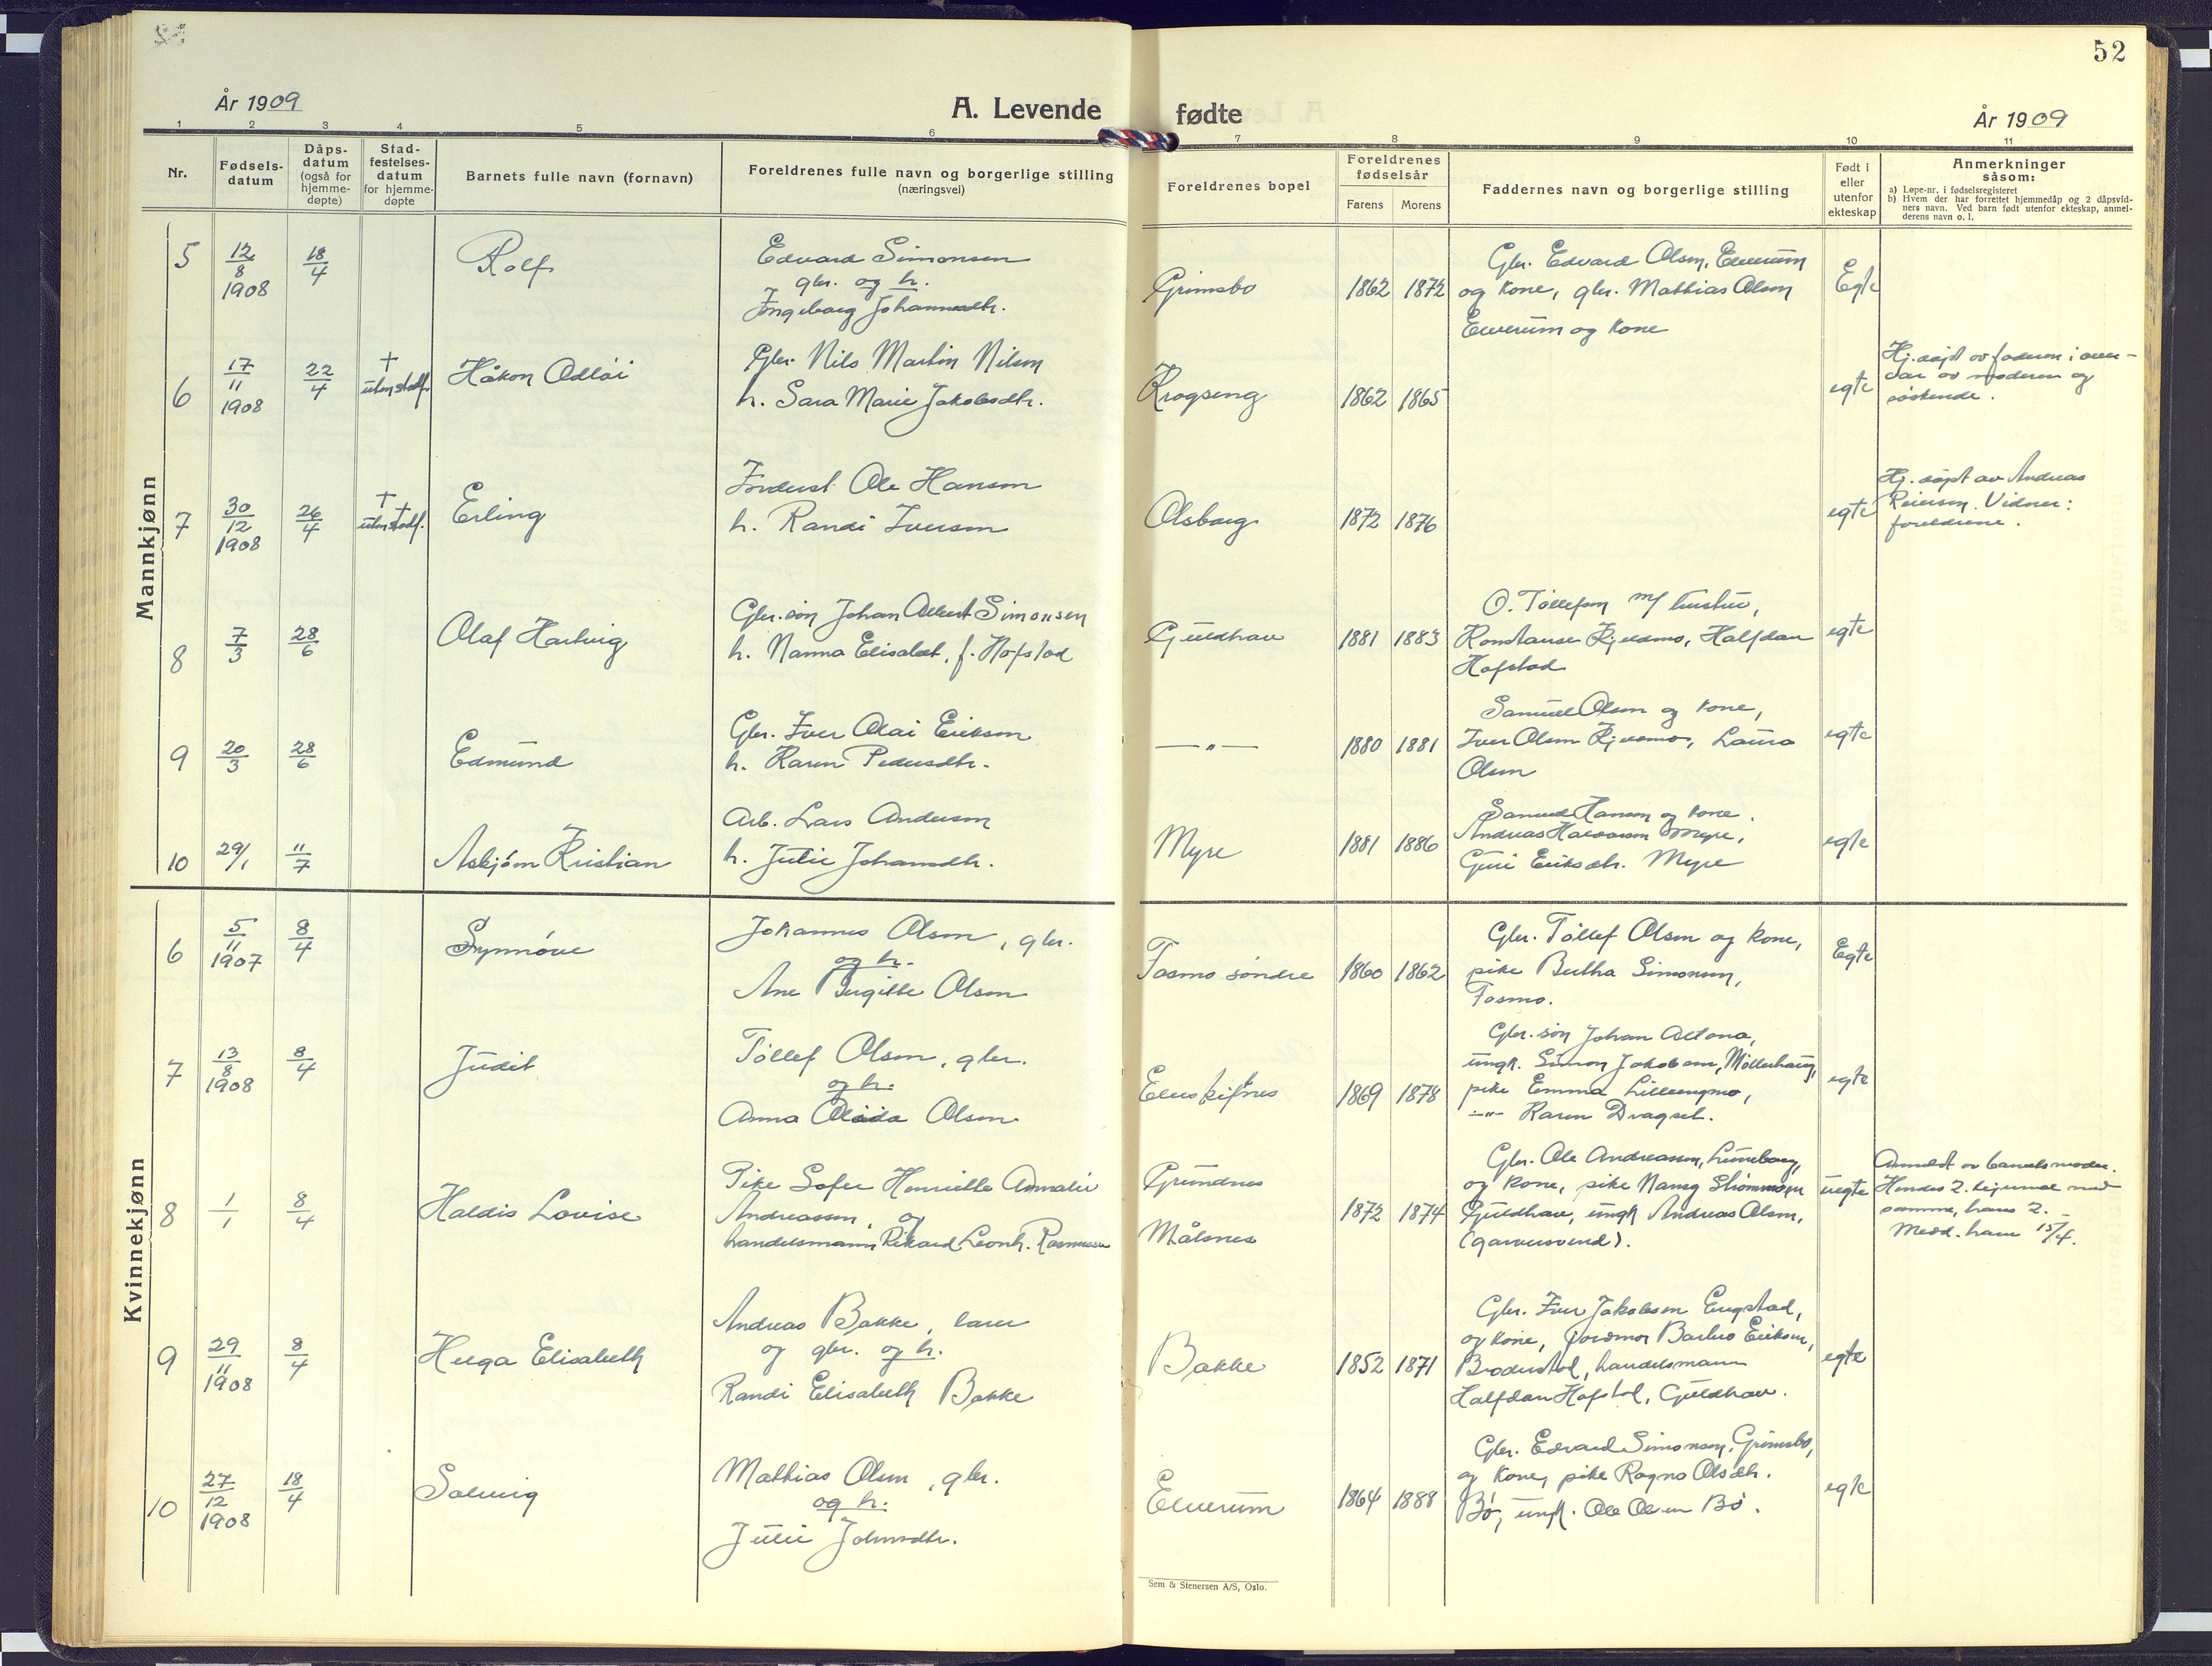 52
År 1909
A. Levende fødte
År 1909
1 2 3 4 5 6 7 8 9 10 11
Nr.
Fødsels-
datum
Dåps-
datum
(også for
hjemme-
døpte)
Stad-
festelses-
datum
for hjemme-
døpte
Barnets fulle navn (fornavn)
Foreldrenes fulle navn og borgerlige stilling
(næringsvei)
Foreldrenes bopel
Foreldrenes
fødselsår
Farens Morens
Faddernes navn og borgerlige stilling
Født i
eller
utenfor
ekteskap
Anmerkninger
såsom:
a) Løpe-nr. i fødselsregisteret
b) Hvem der har forrettet hjemmedåp og 2 dåpsvid-
ners navn. Ved barn født utenfor ekteskap, anmel-
derens navn o. l.
Mannkjønn
5 12/8 1908 18/4 Rolf
Edvard Simonsen
gbr. og h.
Ingeborg Johannesdtr.
Grimsbo 1862 1872
Gbr. Edvard Olsen, Elverum
og kone, gbr. Mathias Olsen
Elverum og kone
Egte
6 17/11 1908 22/4 † uten stadf. Håkon Odlåi
Gbr. Nils Martin Nilsen
h. Sara Marie Jakobsdtr.
Krogseng 1862 1865 egte
Hj.døpt av faderen i over-
vær av moderen og
søskende.
7 30/12 1908 26/4 † uten stadf. Erling
Inderst Ole Hansen
h. Randi Iversen
Olsborg 1872 1876 egte
Hj. døpt av Andreas
Reiersen. Vidner:
foreldrene.
8 7/3 28/6 Olaf Hartvig
Gbr.søn Johan Albert Simonsen
h. Nanna Elisabet, f. Hofstad
Guldhav 1881 1883
O. Tollefsen m/ hustru,
Konstanse Kjeldmo, Halfdan
Hofstad
egte
9 20/3 28/6 Edmund
Gbr. Iver Olai Eriksen
h. Karen Pedersdtr.
—"— 1880 1881
Samuel Olsen og kone,
Iver Olsen, Laura
Olsen
egte
10 29/1 11/7 Asbjørn Kristian
Arb. Lars Andersen
h. Julie Johansdtr.
Myre 1881 1886
Samuel Hansen og kone.
Andreas Halvorsen Myre,
Guri Eriksdtr. Myre
egte
Kvinnekjønn
6 5/11 1907 8/4 Synnøve
Johannes Olsen, gbr.
og h.
Ane Birgitte Olsen
Fosmo søndre 1860 1862
Gbr. Tollef Olsen og kone,
pike Bertha Simonsen,
Fosmo.
Egte
7 13/8 1908 8/4 Judit
Tollef Olsen, gbr.
og h.
Anna Olaida Olsen
Elveskiftnes 1869 1878
Gbr. søn Johan Altona,
ungk. Simon Jakobsen, Møllerhaug,
pike Emma Lillengmo,
—"— Karen Dragset.
egte
8 1/1 8/4 Haldis Lovise
Pike Sofie Henriette Annalie
Andreassen, og
handelsmann Rikard Leonh. Rasmussen
Grundnes
Målsnes
1872 1874
Gbr. Ole Andreassen, Luneborg,
og kone, pike Nanny Strømmesen
Guldhav, ungk Andreas Olsen,
(garversvend).
uegte
Anmeldt av barnets moder.
Hendes 2. leiermål med
samme, hans 2.
Medd. ham 15/4.
9 29/11 1908 8/4 Helga Elisabeth
Andreas Bakke, lærer
og gbr. og h.
Randi Elisabeth Bakke
Bakke 1852 1871
Gbr. Iver Jakobsen Engstad,
og kone, jordmor Barbro Eriksen,
Broderstad, handelsmann
Halfdan Hofstad, Guldhav.
egte
10 27/12 1908 18/4 Solveig
Mathias Olsen, gbr.
og h.
Julie Johnsdtr.
Elverum 1864 1888
Gbr. Edvard Simonsen, Grimsbo,
og kone, pike Ragna Olsdtr.
Bø, ungk. Ole Olsen Bø.
egte
Sem & Stenersen A/S, Oslo.